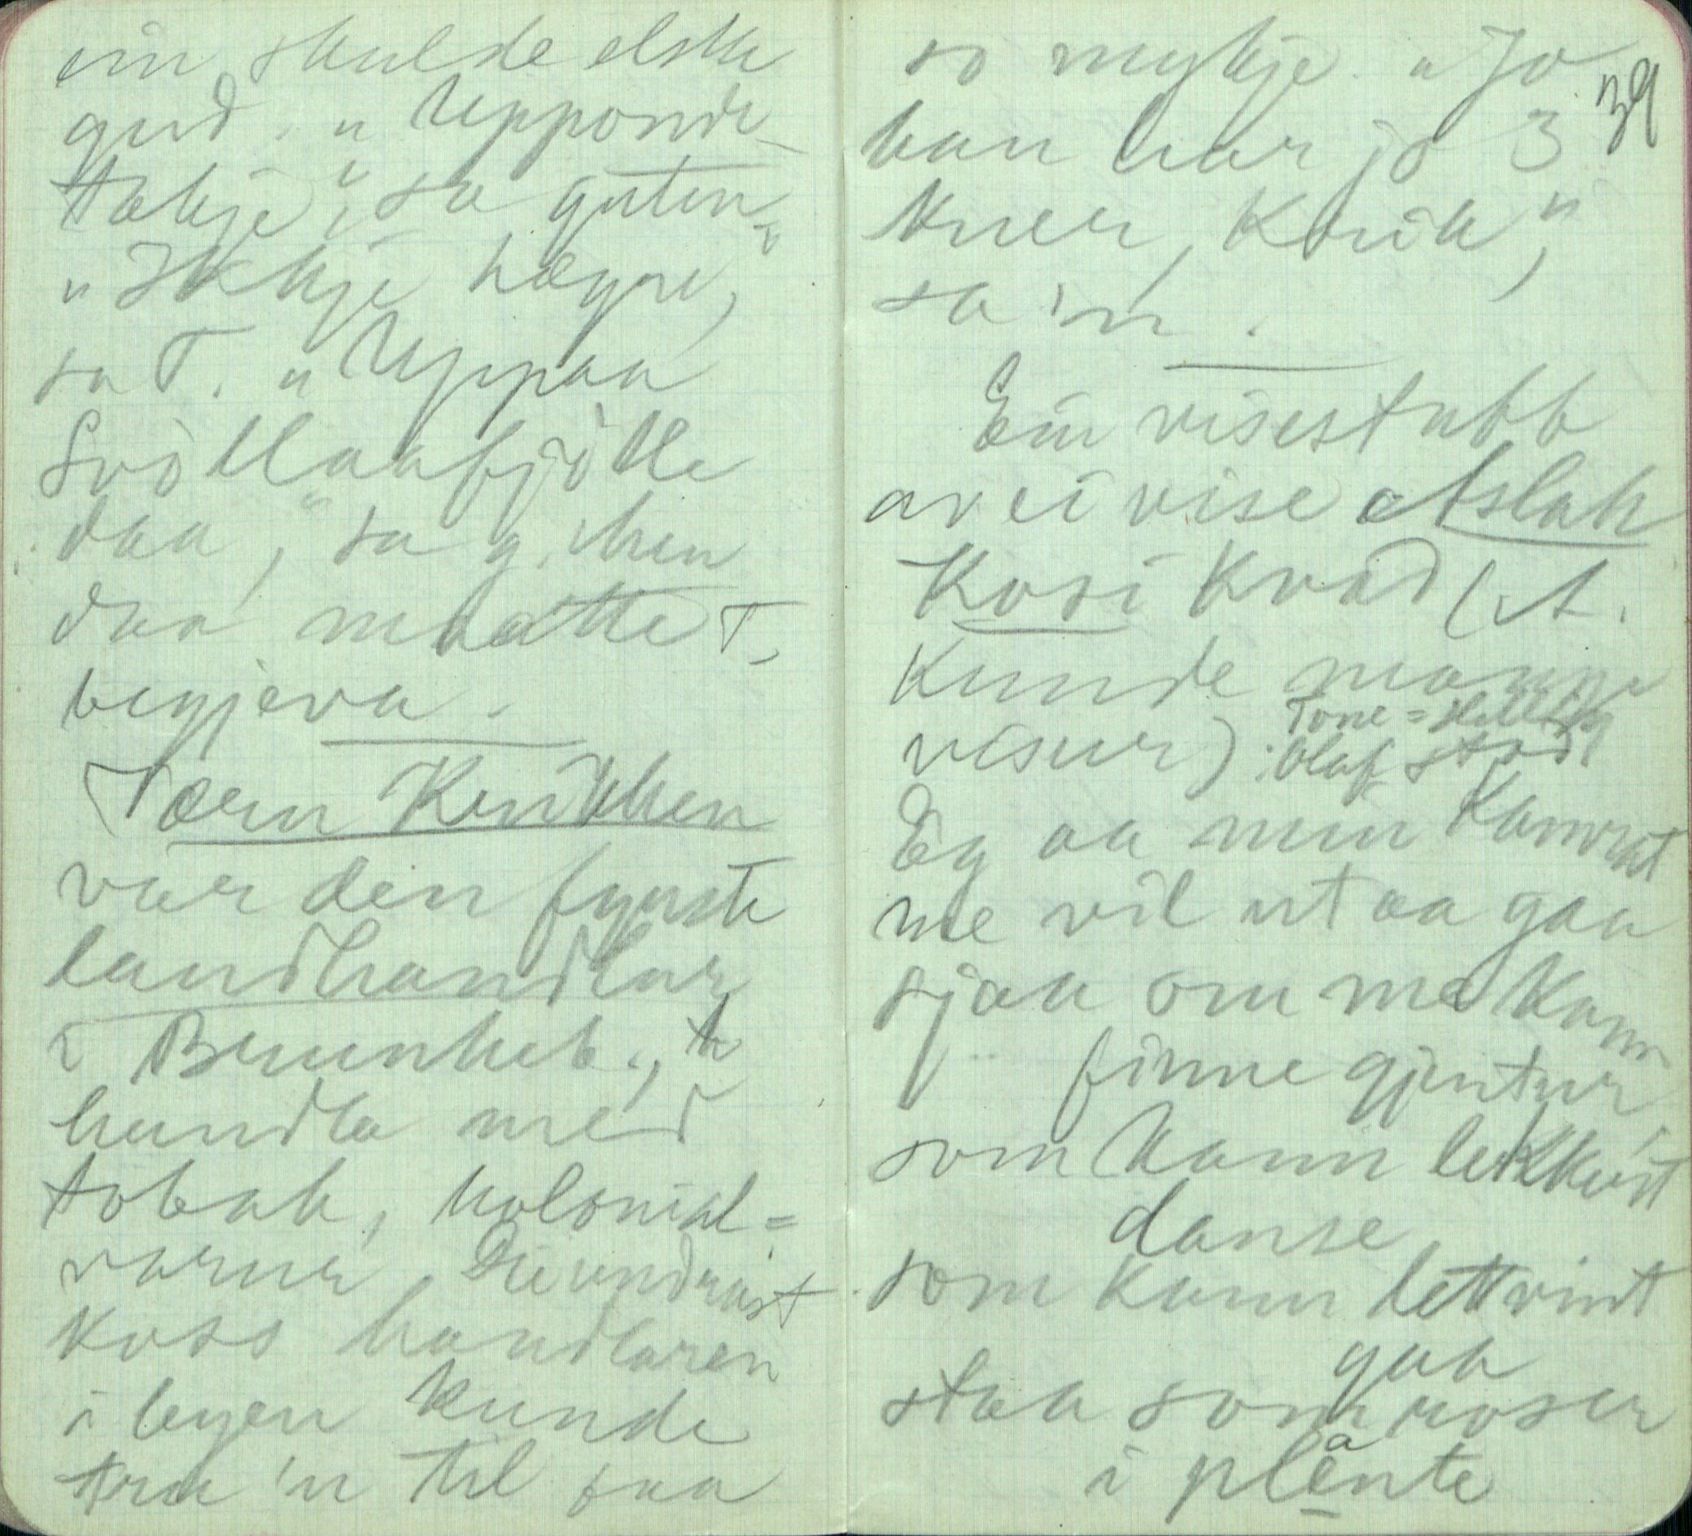 ein skulde elska
gud. "Upponde-
takje", sa guten.
"Ikkje høgre",
sa T. "Uppaa
Svòllaafjølle
daa", sa g. Men
daa maatte T.
begjeva.
Tærn Krikken
var den fyrste
landhandlar
i Brunkeb.,
handla med
tobak, kolonial=
varur. Ein undrast
koss handlaren
i byen kunde
tru 'n til saa
so mykje. "Jo
han har jo 3
kner, Krik",
sa 'n.
39
Ein visestubb
av ei vise Aslak
Kosi kvad (A.
kunde mange
visur). Tone =
Olaf stod
Eg aa min kamrat
me vil ut aa gaa
sjaa om me kann
finne gjentur,
som kann lekkert
danse,
som kann lettvint
gaa
staa som rosur
i plante
a